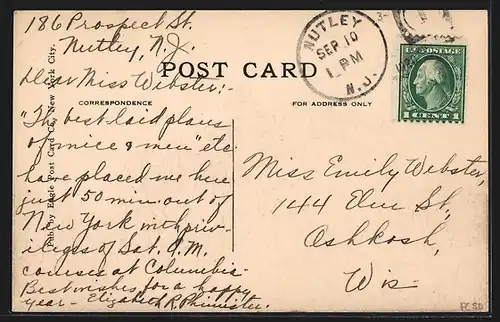 186 Prospect St.
Nutley, N.J.
Dear Miss Webster:-
"The best laid plans
of mice & men" etc
have placed me here
just 50 min. out of
New York with priv-
ileges of Sat. A.M.
courses at Columbia.
Best wishes for a happy
year - Elizabeth R. Phimister.
POST CARD
CORRESPONDENCE
FOR ADDRESS ONLY
Publ. by Eagle Post Card Co., New York City.
NUTLEY
SEP 10
1 PM
N.J.
U.S. POSTAGE
1 CENT 1
Miss Emily Webster,
144 Elm St,
Oshkosh,
Wis